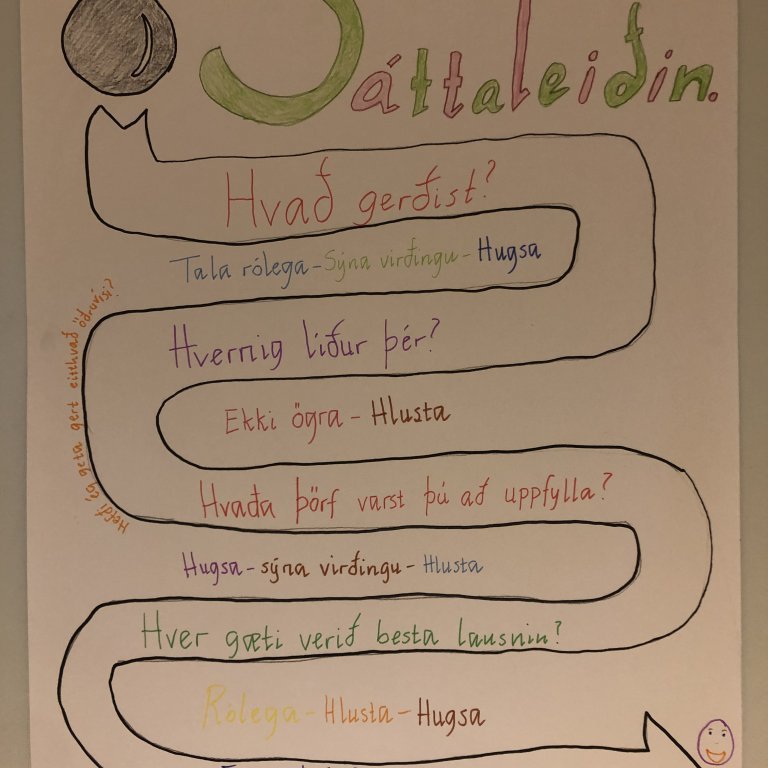 Sáttaleiðin.
Hvað gerðist?
Tala rólega - Sýna virðingu - Hugsa
Hvernig líður þér?
Ekki ögra - Hlusta
Hefði ég geta gert eitthvað öðruvísi?
Hvaða þörf varst þú að uppfylla?
Hugsa - sýna virðingu - Hlusta
Hver gæti verið besta lausnin?
Rólega - Hlusta - Hugsa